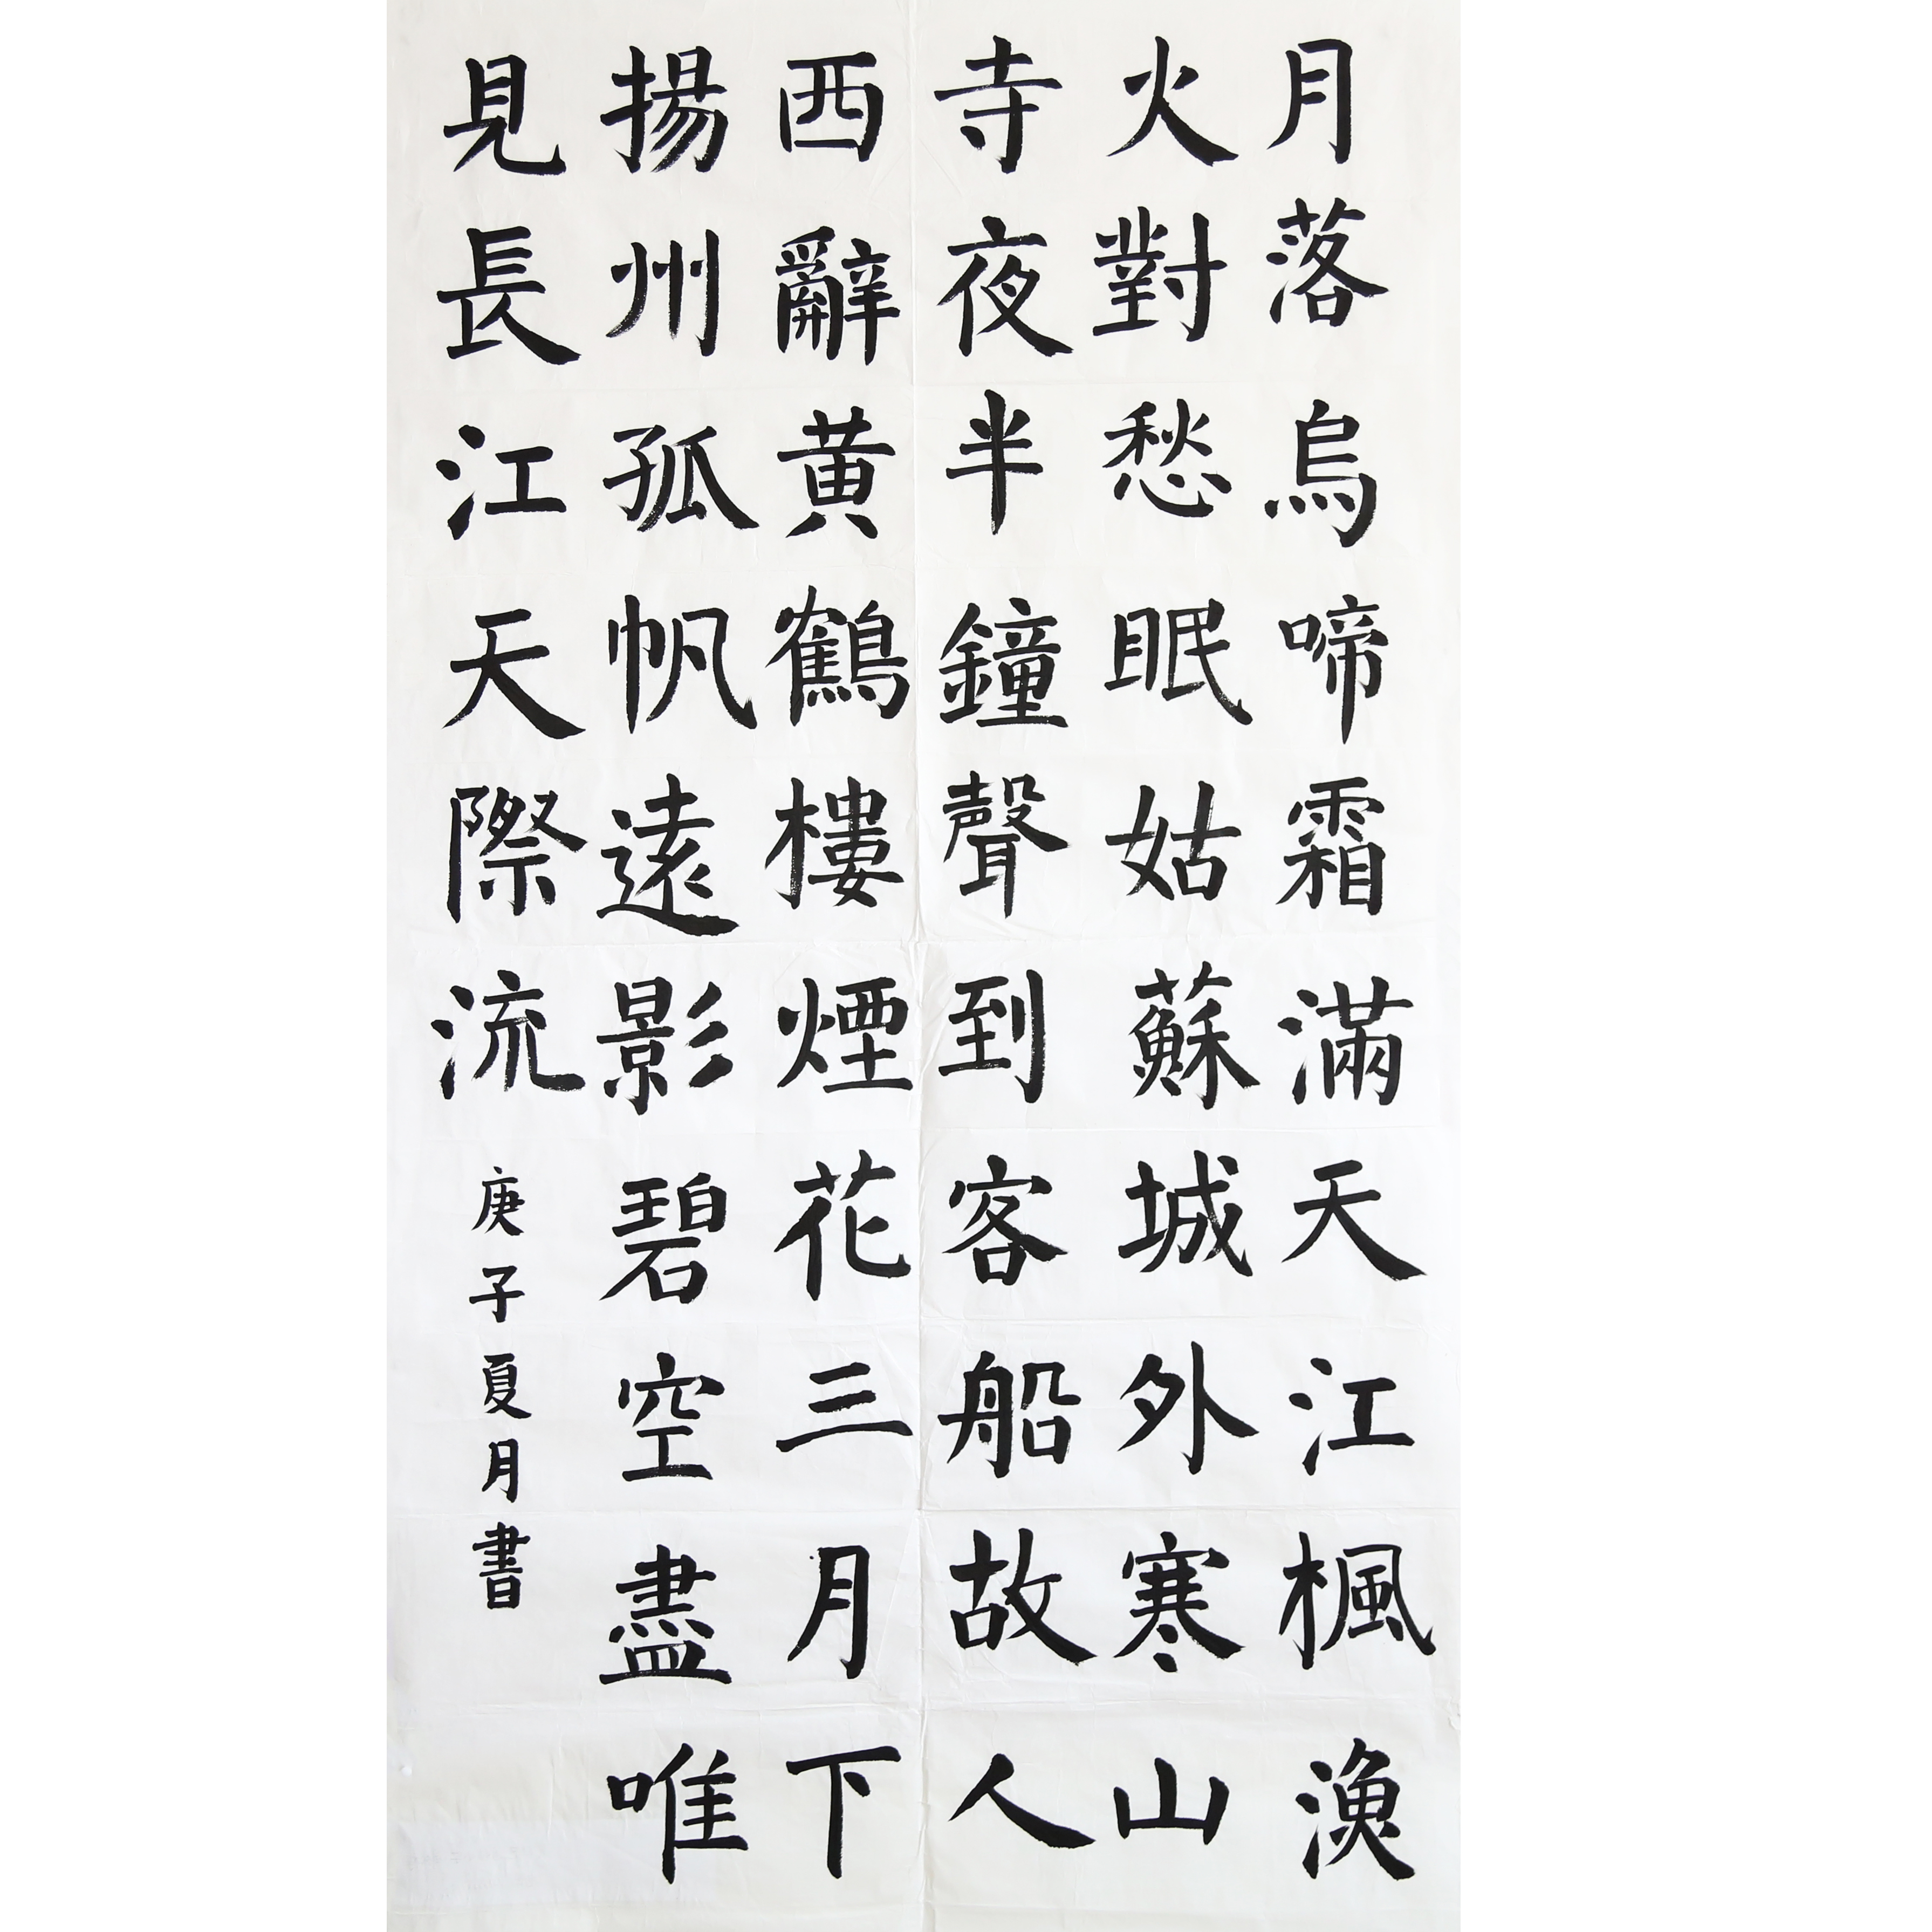 月落烏啼霜滿天江楓漁
火對愁眠姑蘇城外寒山
寺夜半鐘聲到客船故人
西辭黃鶴樓煙花三月下
揚州孤帆遠影碧空盡唯
見長江天際流
庚子夏月書